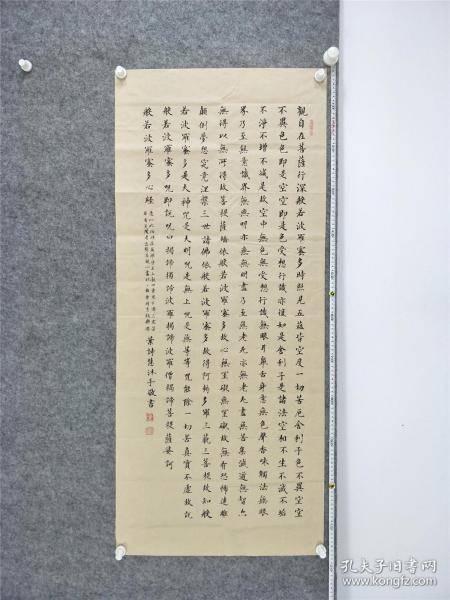 觀自在菩薩行深般若波羅蜜多時照見五蘊皆空度一切苦厄舍利子色不異空空
不異色色即是空空即是色受想行識亦復如是舍利子是諸法空相不生不滅不垢
不淨不增不減是故空中無色無受想行識無眼耳鼻舌身意無色聲香味觸法無眼
界乃至無意識界無無明亦無無明盡乃至無老死亦無老死盡無苦集滅道無智亦
無得以無所得故菩提薩埵依般若波羅蜜多故心無罣礙無罣礙故無有恐怖遠離
顛倒夢想究竟涅槃三世諸佛依般若波羅蜜多故得阿耨多羅三藐三菩提故知般
若波羅蜜多是大神咒是大明咒是無上咒是無等等咒能除一切苦真實不虛故說
般若波羅蜜多咒即說咒曰揭諦揭諦波羅揭諦波羅僧揭諦菩提薩婆訶
般若波羅蜜多心經
葉詩慧沐手敬書
孔夫子旧书网
www.kongfz.com